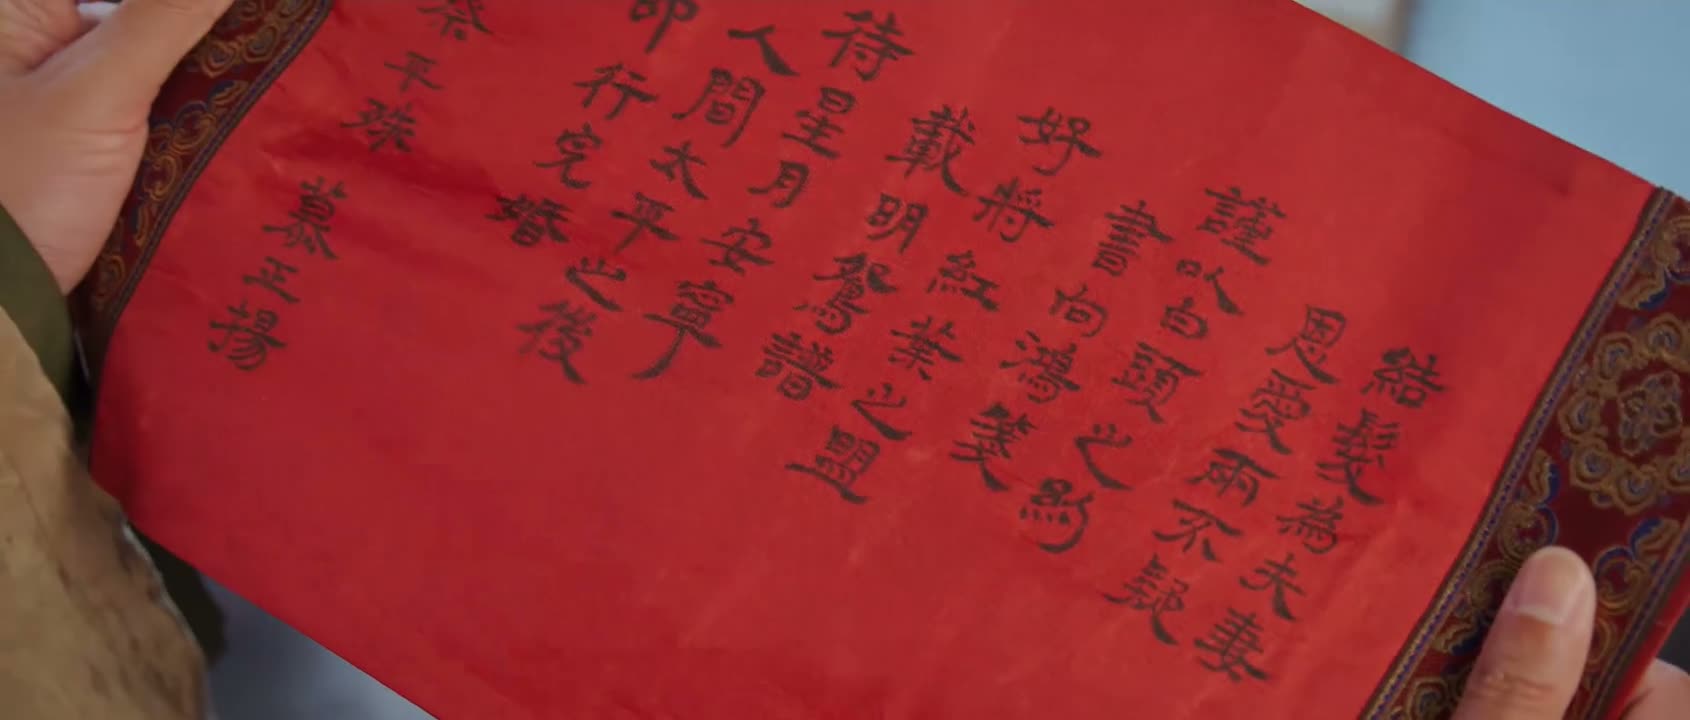 結髮為夫妻
恩愛兩不疑
謹以白頭之約
書向鴻箋
好將紅葉之盟
載明鴛譜
待星月安寧
人間太平之後
即行完婚
蔡平殊
慕正揚